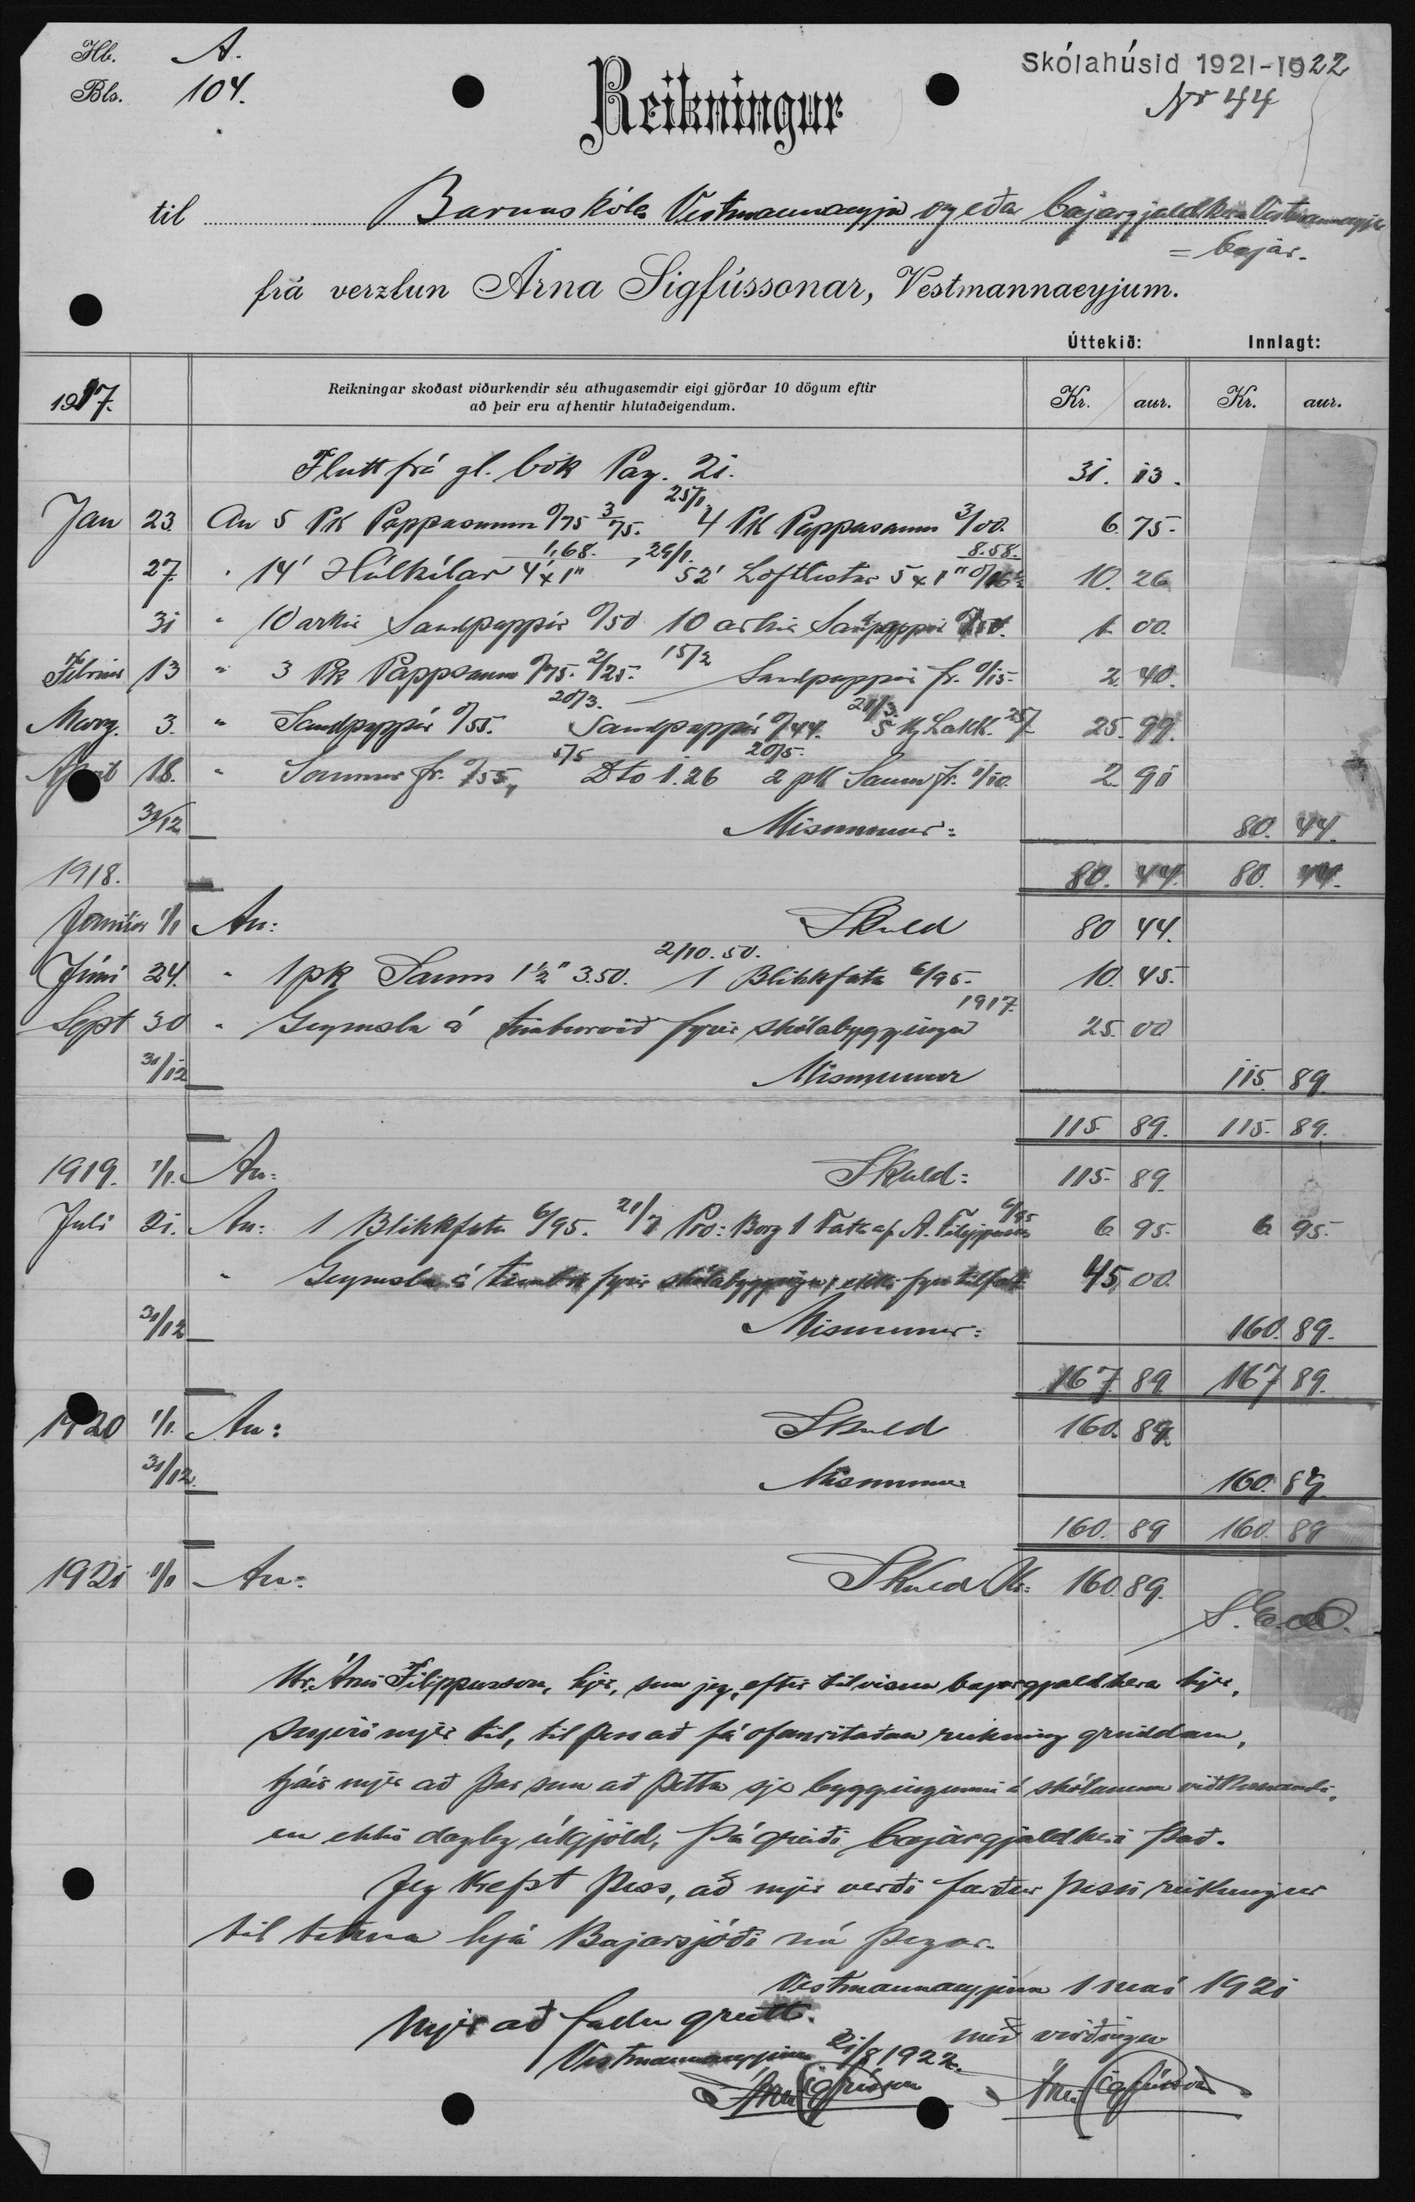 Hb. A.
Bls. 104.
Skólahúsid 1921-1922
Nr 44
Reikningur
til Barnaskóla Vestmannaeyja og eða bæjargjaldkera Vestmannaeyja
= bæjar.
frá verzlun Árna Sigfússonar, Vestmannaeyjum.
Úttekið: Innlagt:
1917. Reikningar skoðast viðurkendir séu athugasemdir eigi gjörðar 10 dögum eftir
að þeir eru afhentir hlutaðeigendum. Kr. aur. Kr. aur.
Flutt frá gl. bók Pag. 21. 31. 13.
Jan 23 An 5 Pk Pappasaum 0/75 3/75. 25/1 4 PK Pappasaum 3/00. 6. 75.
27. " 14' Hálkílar 4"x1" 1,68. 29/1 52' Loftlistar 5x1" 8.58. 10. 26
31 " 10 arkir Sandpappír 0/50 10 arkir Sandpappír 0/50. 1. 00.
Febrúar 13 " 3 Pk Pappsaum 0/75. 2/25. 15/2 Sandpappír fr. 0/15. 2. 40.
Marz. 3. " Sandpappír 0/55. 20/3. Sandpappír 0/44. 21/3. 5 kg Lakk. 25/ 25. 99.
Apríl 18. " Saumur fr. 0/55, 5/5 Dto 1.26 20/5. 2 pk Saum fr. 1/10. 2. 91
31/12 Mismunur: 80. 44.
1918. 80. 44. 80. 44.
Janúar 1/1 An: Skuld 80 44.
Júní 24. " 1 pk Saum 1 1/2" 3.50. 2/10. 50. 1 Blikkfata 6/95. 10. 45.
Sept 30 " Geymsla á timburvið fyrir skólabygginguna 1917. 25. 00
31/12 Mismunur 115. 89.
115. 89. 115. 89.
1919. 1/1. An: Skuld: 115. 89.
Juli 21. An: 1 Blikkfata 6/95. 21/7 Pro: Borg 1 Fata af A. Filippussyni 6/95 6. 95. 6. 95.
" Geymsla á timbri fyrir skólabygginguna, ekki fyr tilfært 45. 00.
31/12 Mismunur: 160. 89.
167 89 167 89.
1920 1/1. An: Skuld 160. 89.
31/12. Mismunur 160. 89.
160. 89 160. 89
1921 1/1 An: Skuld Kr: 160. 89.
S. E. & O.
Hr. Árni Filippusson, hjer, sem jeg, eftir tilvísun bæjargjaldkera hjer,
sneri mjer til, til þess að fá ofanritaðan reikning greiddan,
tjáir mjer að þar sem að þetta sje byggingunni á skólanum viðkomandi,
en ekki dagleg útgjöld, þá greiði bæjargjaldkeri það.
Jeg krefst þess, að mjer verði færður þessi reikningur
til tekna hjá Bæjarsjóði nú þegar.
Vestmannaeyjum 1 maí 1921
með virðingu
Árni Sigfússon
Mjer að fullu greitt.
Vestmannaeyjum 31/8 1922.
Árni Sigfússon